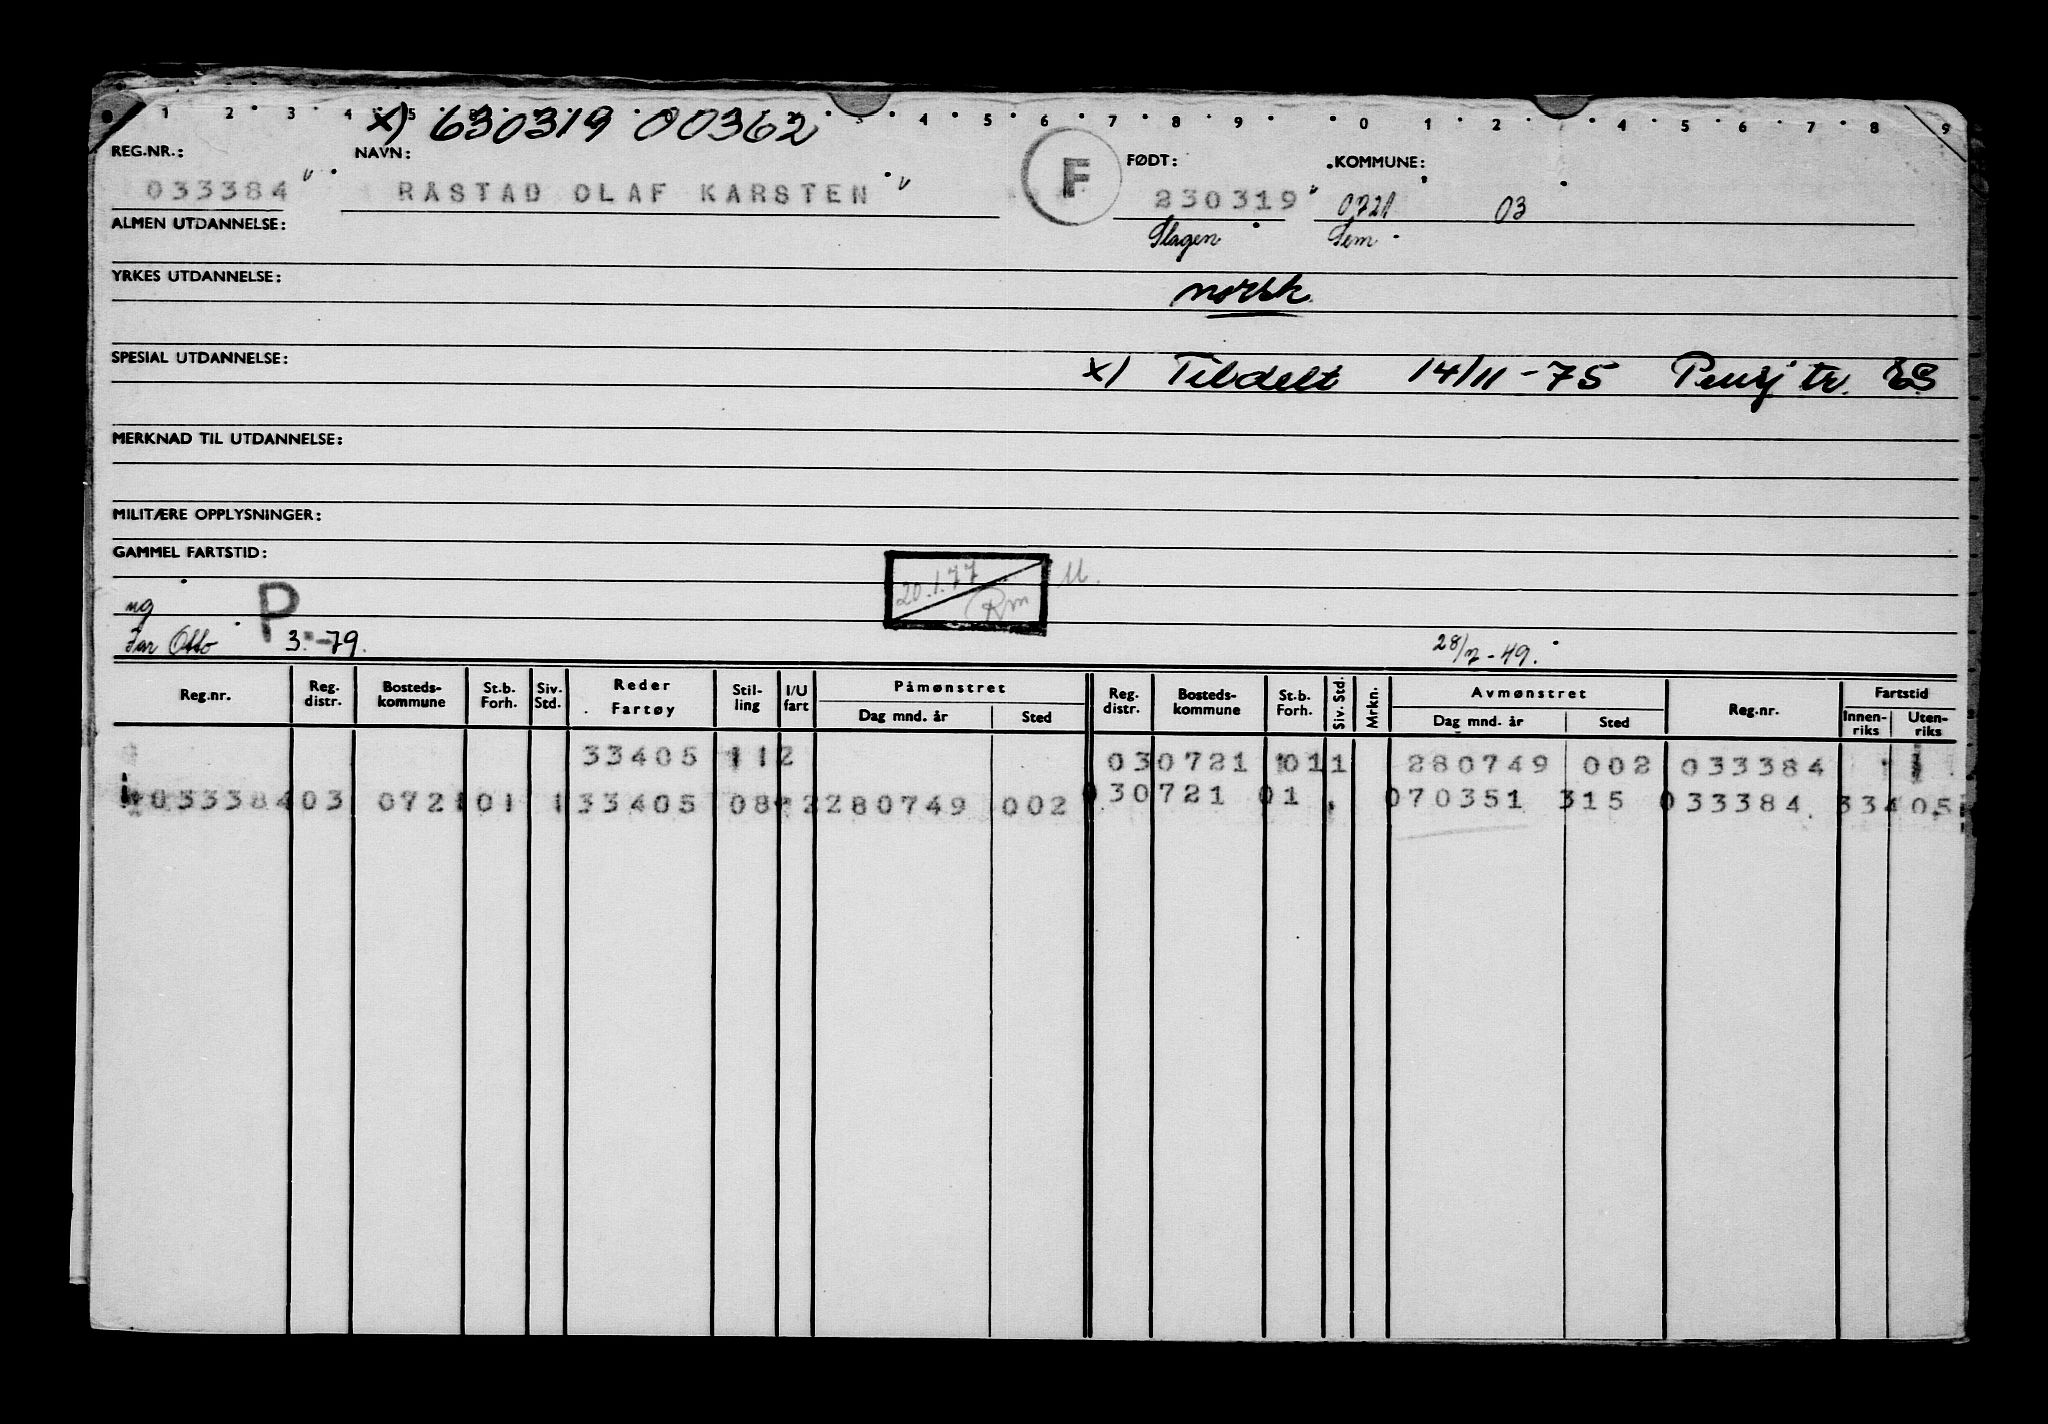 1 2 3 4 5 3 4 5 6 7 8 9 0 1 2 4 5 6 7 8 9
x) 630319 00362
REG.NR.: NAVN: F FØDT: KOMMUNE:
033384 RÅSTAD OLAF KARSTEN 230319 0721 03
ALMEN UTDANNELSE: Slagen Sem
YRKES UTDANNELSE: norsk
SPESIAL UTDANNELSE: x) Tildelt 14/11-75 Pensj tr.
MERKNAD TIL UTDANNELSE:
MILITÆRE OPPLYSNINGER:
GAMMEL FARTSTID:
20.1.77 Rm
ug P
Far Otto 3.-79. 28/7-49.
Reg.nr. Reg. distr. Bosteds-kommune St.b. Forh. Siv. Std. Reder Fartøy Stil-ling I/U fart Påmønstret Dag mnd. år Sted Reg. distr. Bosteds-kommune St.b. Forh. Siv. Std. Mrkn. Avmønstret Dag mnd. år Sted Reg.nr. Fartstid Innen-riks Uten-riks
33405 112 030721 011 280749 002 033384
033384 03 0721 01 1 33405 08 2 280749 002 030721 01 070351 315 033384 33405